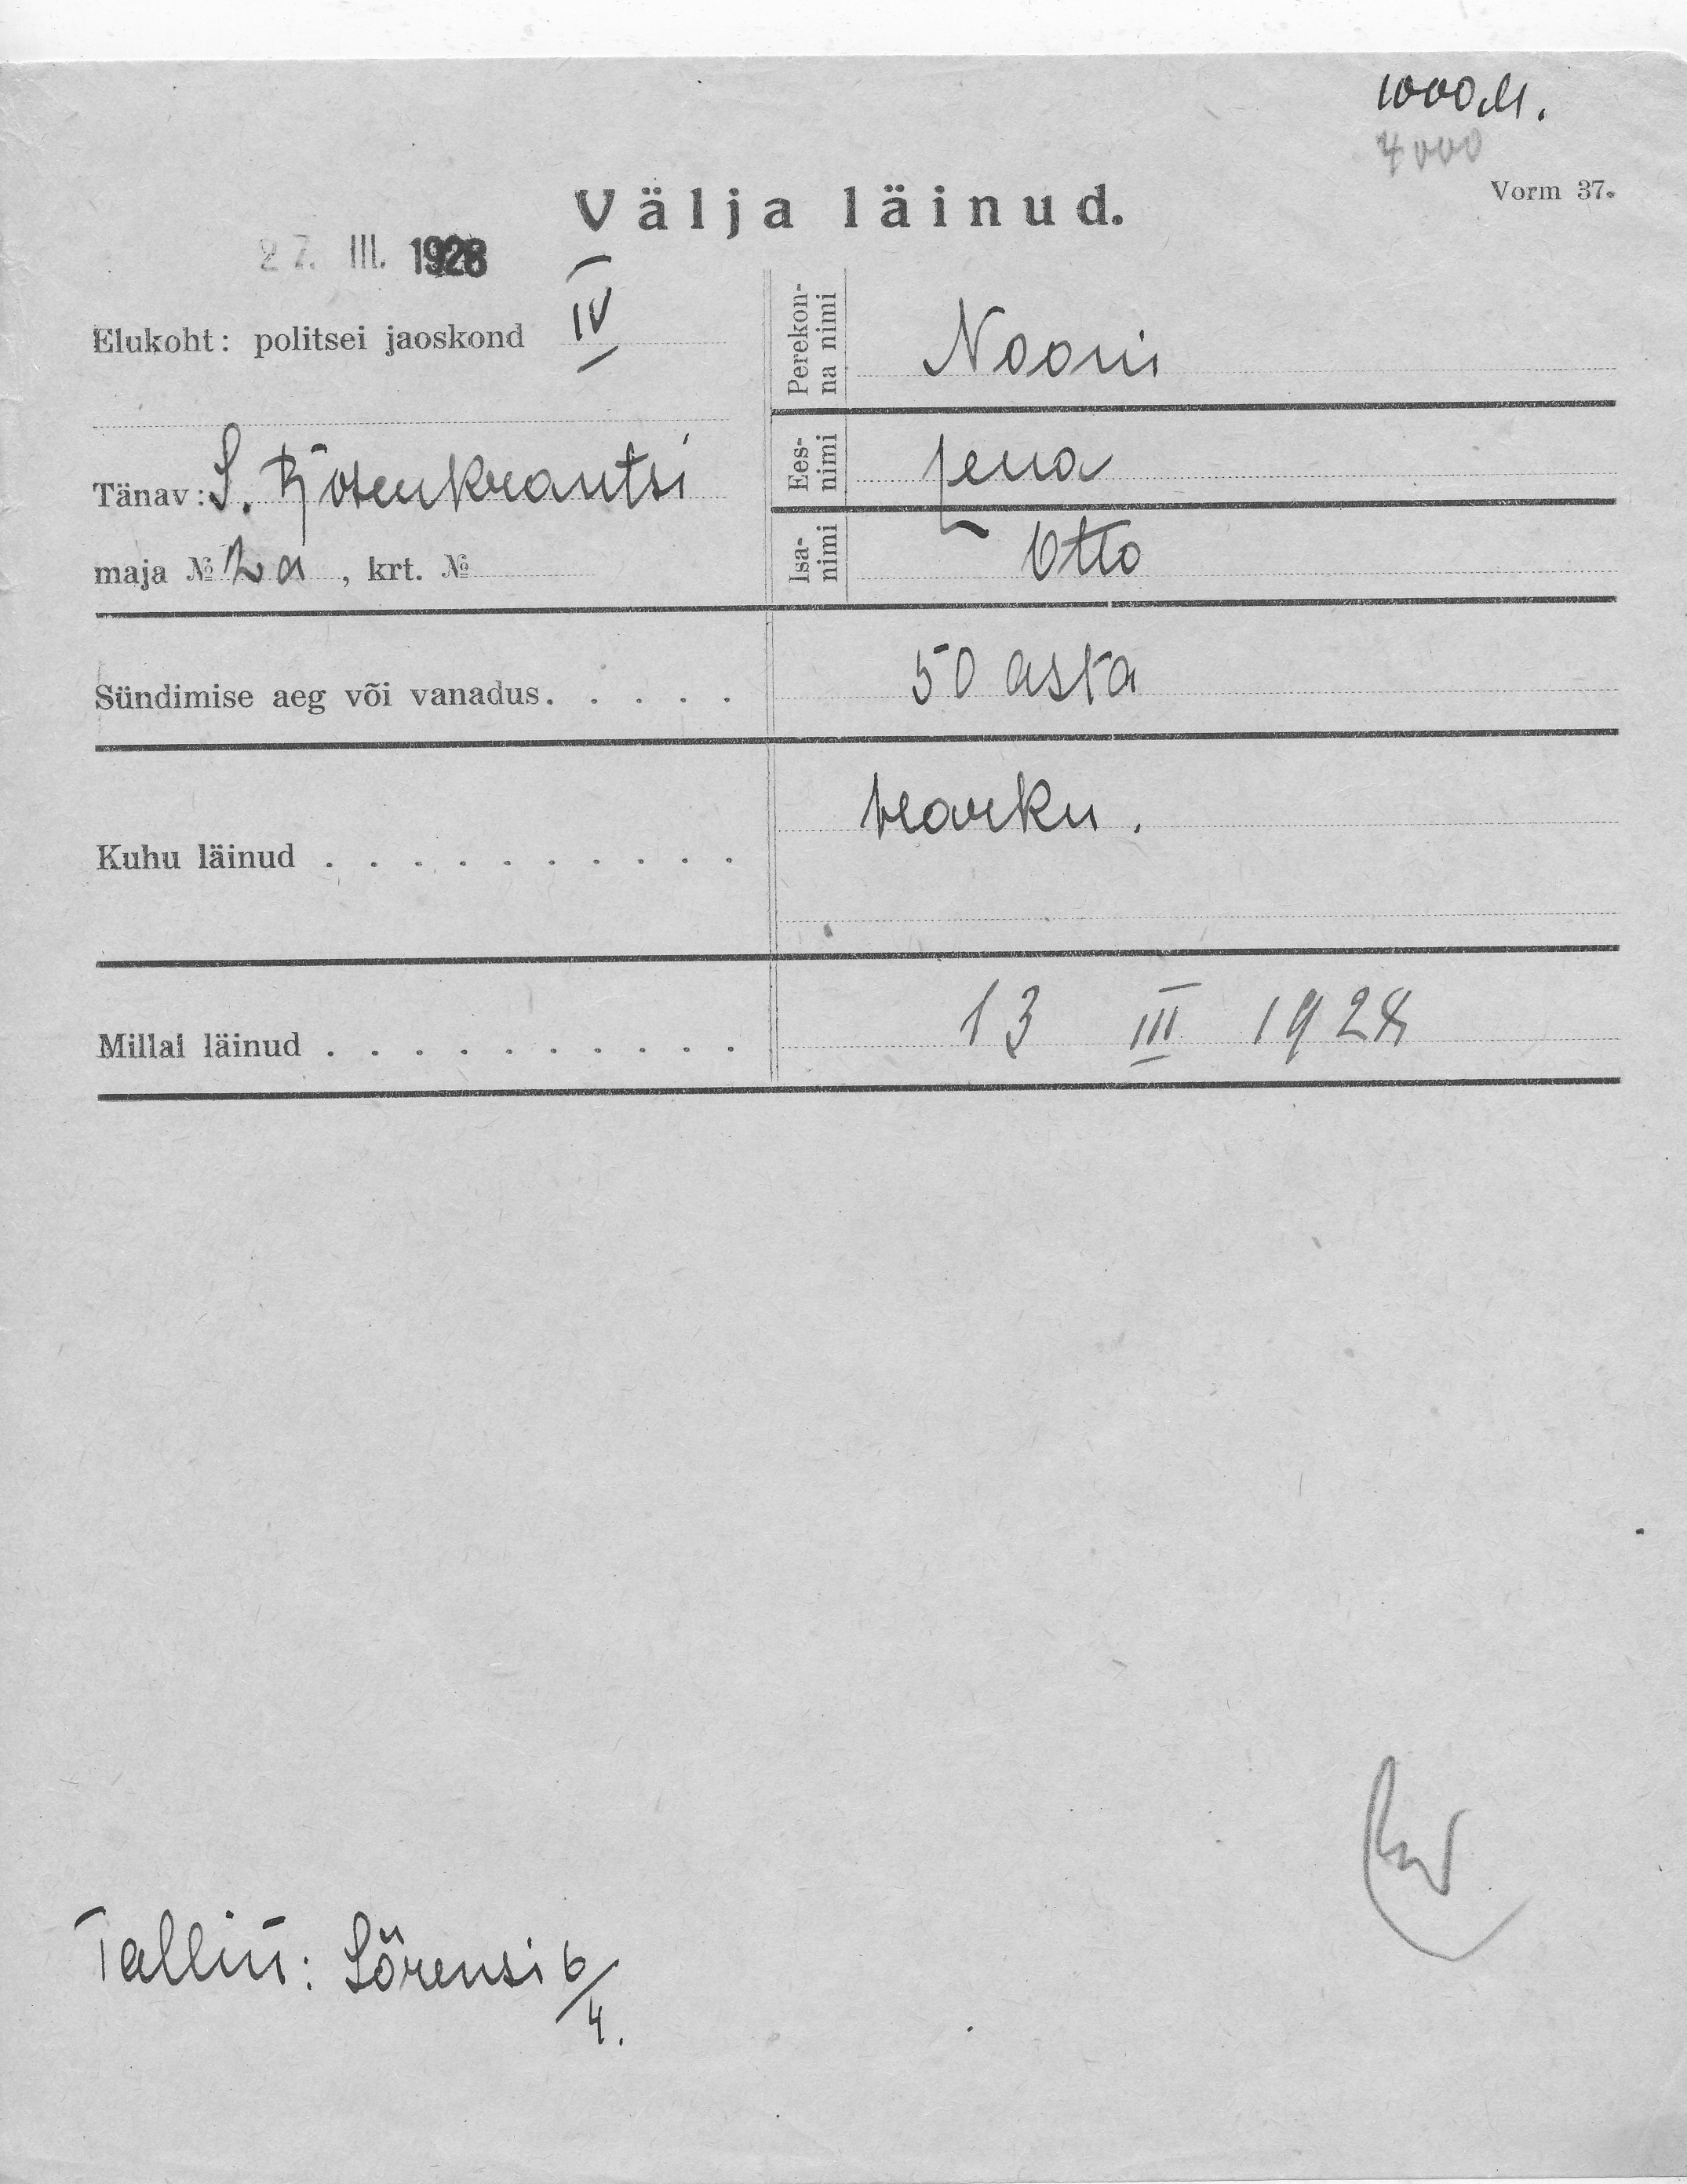 1000 M.
4000
Vorm 37.
Välja läinud.
27. III. 1928
Elukoht: politsei jaoskond IV
Perekonna nimi Noorii
Tänav: S. Rosenkrantsi
Eesnimi Jena
maja № 2a, krt. №
Isanimi Otto
Sündimise aeg või vanadus. . . . . 50 asta
Kuhu läinud . . . . . . . . . . Harku.
Millal läinud . . . . . . . . . . 13 III 1928
Tallin: Sõrensi 6/4.